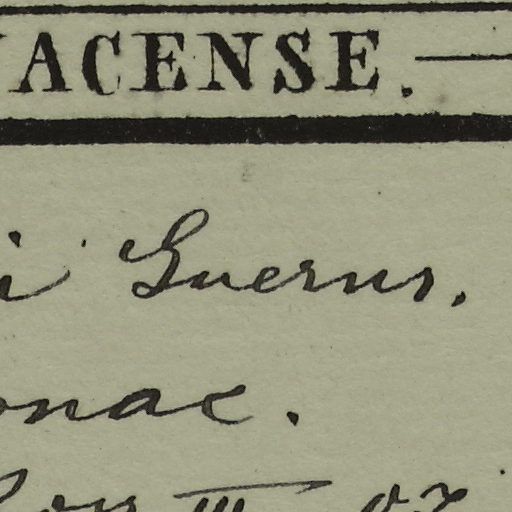 ACENSE.
i Guerns,
onac.